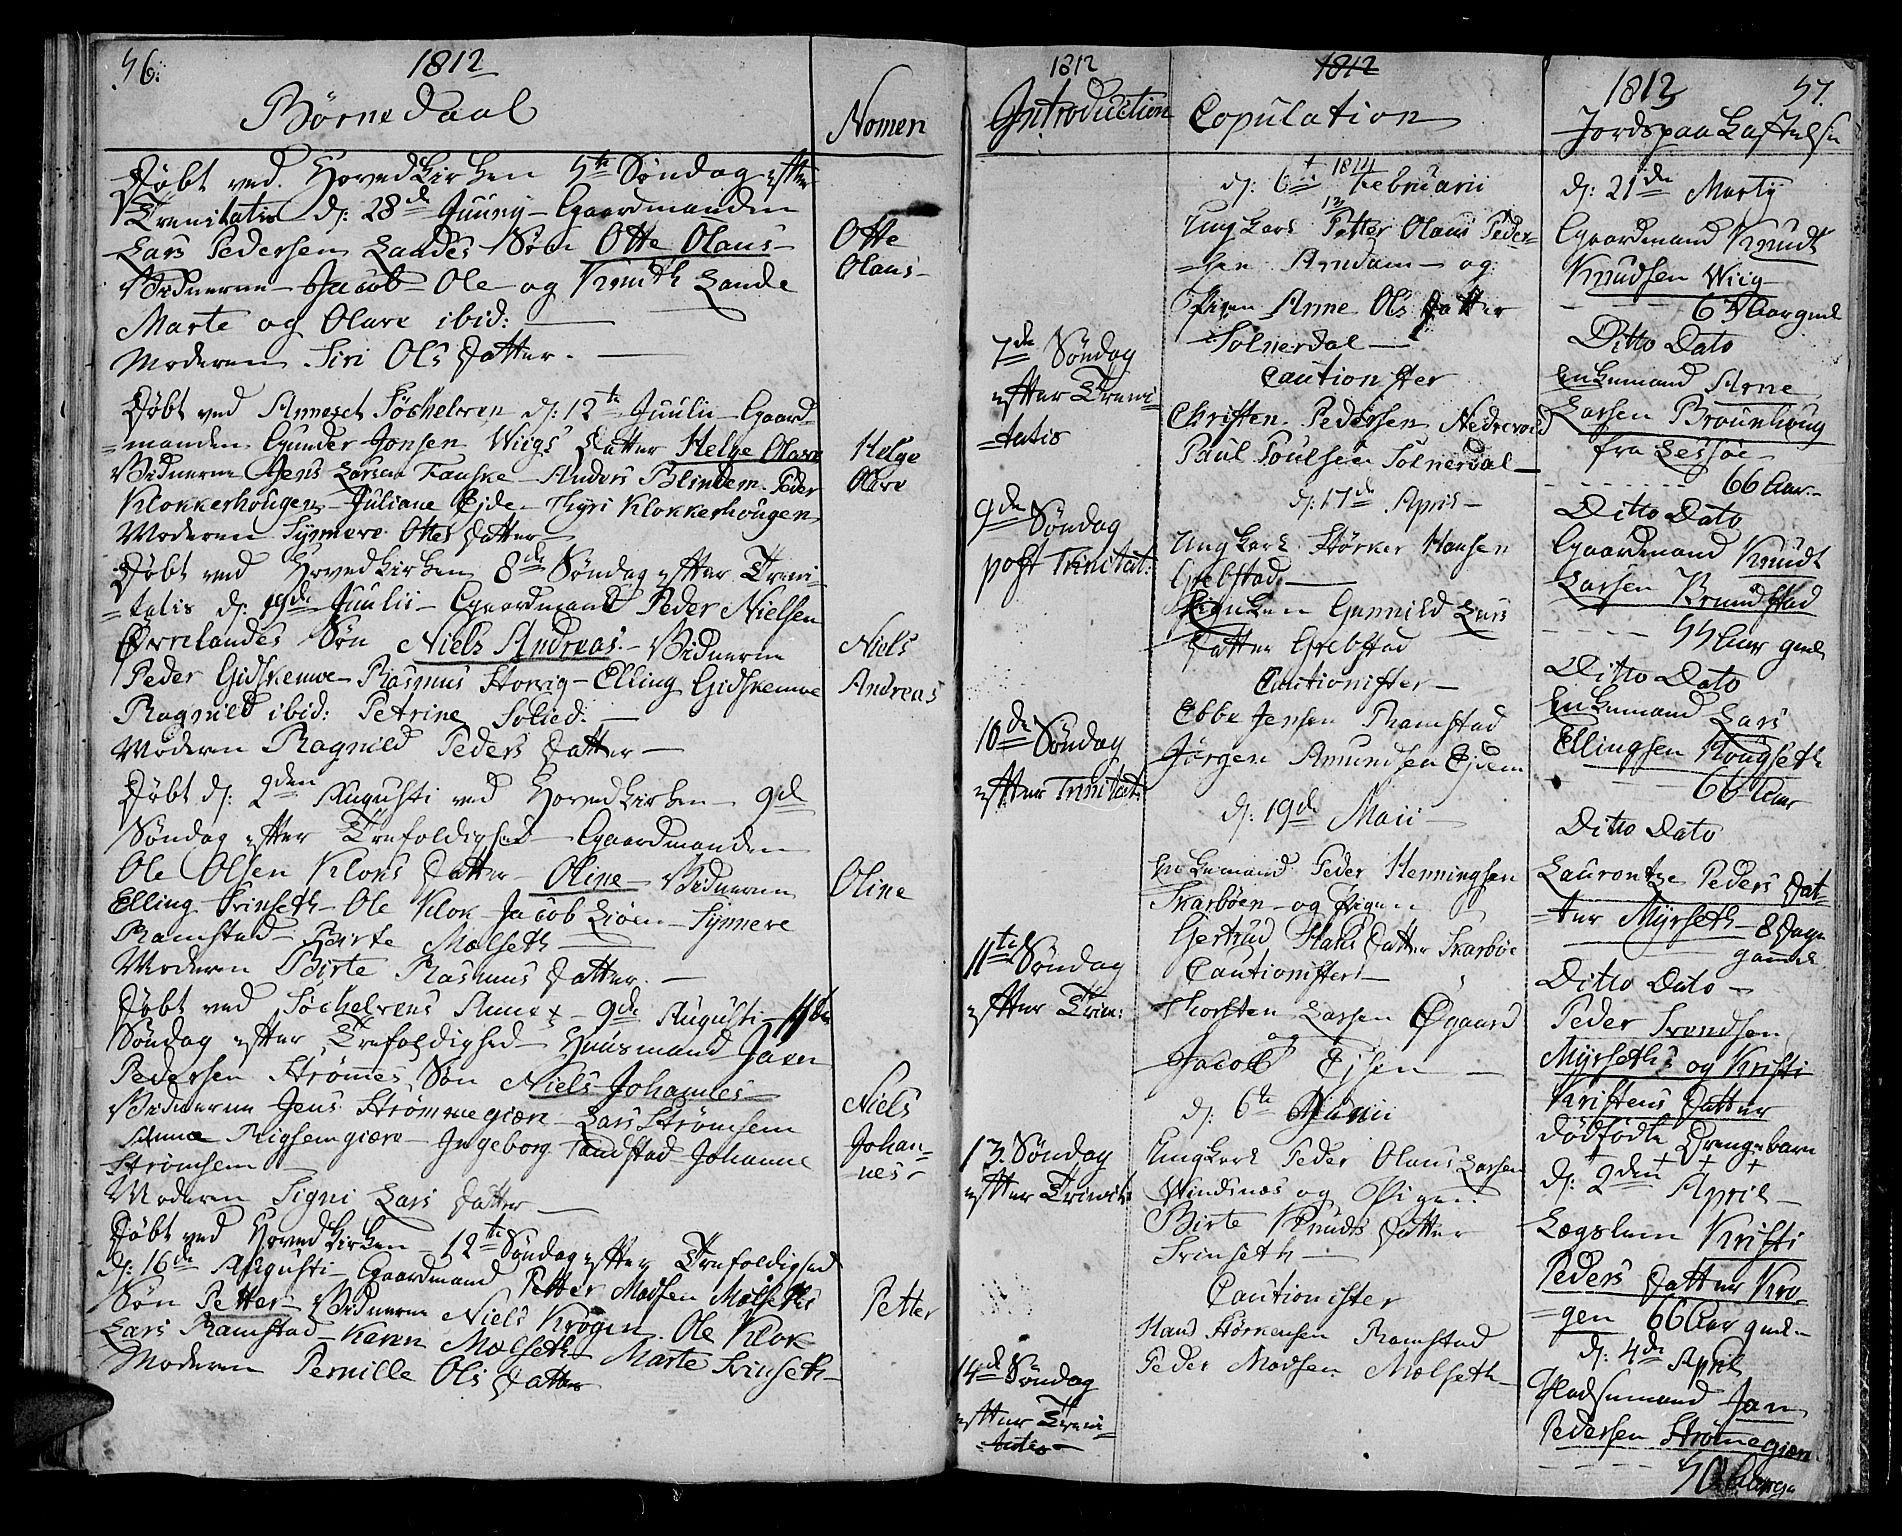 56.
1812
Børnedaab
Nomen
Døbt ved Hovedkirken 5te Søndag efter
Trenitatis d: 28de Juuny - Gaardmanden
Lars Pedersen Landes Søn Otte Olaus -
Vidnerne - Jacob - Ole og Knuth Lande
Marte og Olave ibid: -
Moderen Siri Ols Datter. -
Otte
Olaus -
Døbt ved Annexet Søchelven d: 12te Juulii - Gaard-
=manden Gunder Jonsen Wiigs Datter Helge Olave
Vidnerne Jens Larsen Fauske - Anders Blindem. Peder
Klokkerhougen - Juliane Ejde - Thyri Klokkerhougen
Moderen Synnere Ottes Datter -
Helge
Olave
Døbt ved Hovedkirken 8de Søndag efter Treni-
=tatis d: 19de Juulii - Gaardmand Peder Nielsen
Ørrelandes Søn Niels Andreas. - Vidnerne
Peder Gidskemoe - Rasmus Storvig - Elling Gidskemoe
Ragnild ibid: Petrine -
Moderen Ragnild Peders Datter -
Niels
Andreas
Døbt d: 2den Augusti ved Hovedkirken - 9de
Søndag efter Trefoldighed - Gaardmanden
Ole Olsen Kloks Datter - Oline - Vidnerne
Elling Svinseth - Ole Klok - Jacob Siøen - Synnere
Ramstad - Birte Mælseth -
Moderen Birte Rasmus Datter. -
Oline
Døbt ved Søchelvens Annex - 9de Augusti - 11te
Søndag efter Trefoldighed - Huusmand Jaen
Pedersen Strømes Søn Niels Johannes -
Vidnerne Jens Strømmegiære - Lars Strømsem
Anna Rigsemgiære - Ingeborg Tandstad - Johanne
Strømsem -
Moderen Signi Lars Datter -
Niels
Johan-
=nes -
Døbt ved Hovedkirken 12te Søndag efter Trefoldighed
d: 16de Augusti - Gaardmand Petter Madsen Mælseths
Søn Petter - Vidnerne Niels Krogen. Ole Klok
Lars Ramstad - Karen Mælseth - Marte Svinseth -
Moderen Pernille Ols Datter
Petter
1812
Introduction
7de Søndag
efter Treni-
=tatis
9de Søndag
post Trinitat:
10de Søndag
efter Trinitat:
11te Søndag
efter Trin:
13. Søndag
efter Trinit:
14de Søndag
efter Treni-
=tatis -
1812
Copulation
1814
d: 6te Februarii
13
Ungkarl Petter Olaus Peder-
=sen Arndam - og
Pigen Anne Ols Datter
Solnerdal -
Cautionister
Christen Pedersen Nedrevold
Paul Poulsen Solnerdal -
d: 17de April -
Ungkarl Størker Hansen
Grebstad -
Enken Gunnild Lars
Datter Grebstad
Cautionister -
Ebbe Jensen Ramstad
Jørgen Amundsen Ejdem
d: 19de Maii -
Enkemand Peder Henningsen
Skarbøen - og Pigen
Gertrud Hans Datter Skarbøe
Cautionister -
Thorsten Larsen Øgaard
og
Jacob Ejsen -
d: 6te Junii
Ungkarl Peder Olaus Larsen
Windnæs og Pigen
Birte Knuds Datter
Svinseth -
Cautionister
Hans Størkersen Ramstad
Peder Madsen Mælseth -
1813
57.
Jordspaakastelse
d: 21de Martj
Gaardmand Knudt
Knudsen Wiig -
- - - 63 Aar gml
Ditto Dato
Enkemand Arne
Larsen Brounhoug
fra Lessøe -
- - - 66 Aar -
Ditto Dato
Gaardmand Knudt
Larsen Brundstad
- - - 55 Aar gml
Ditto Dato
Enkemand Lars
Ellingsen Hougseth
- 66 Aar
Ditto Dato
Laurentze Peders Dat-
=ter Myrseth - 8 Dage
gamel
Ditto Dato -
Peder Trondsen
Myrseths og Kristi
Kristens Datter
dødfødte Drengebarn
d: 2den April -
Lægslem Kristi
Peders Datter Kro-
=gen 66 Aar gml -
d: 4de April
Pladsemand Jan
Pedersen Strømegiæren
- - - 50 Aar g